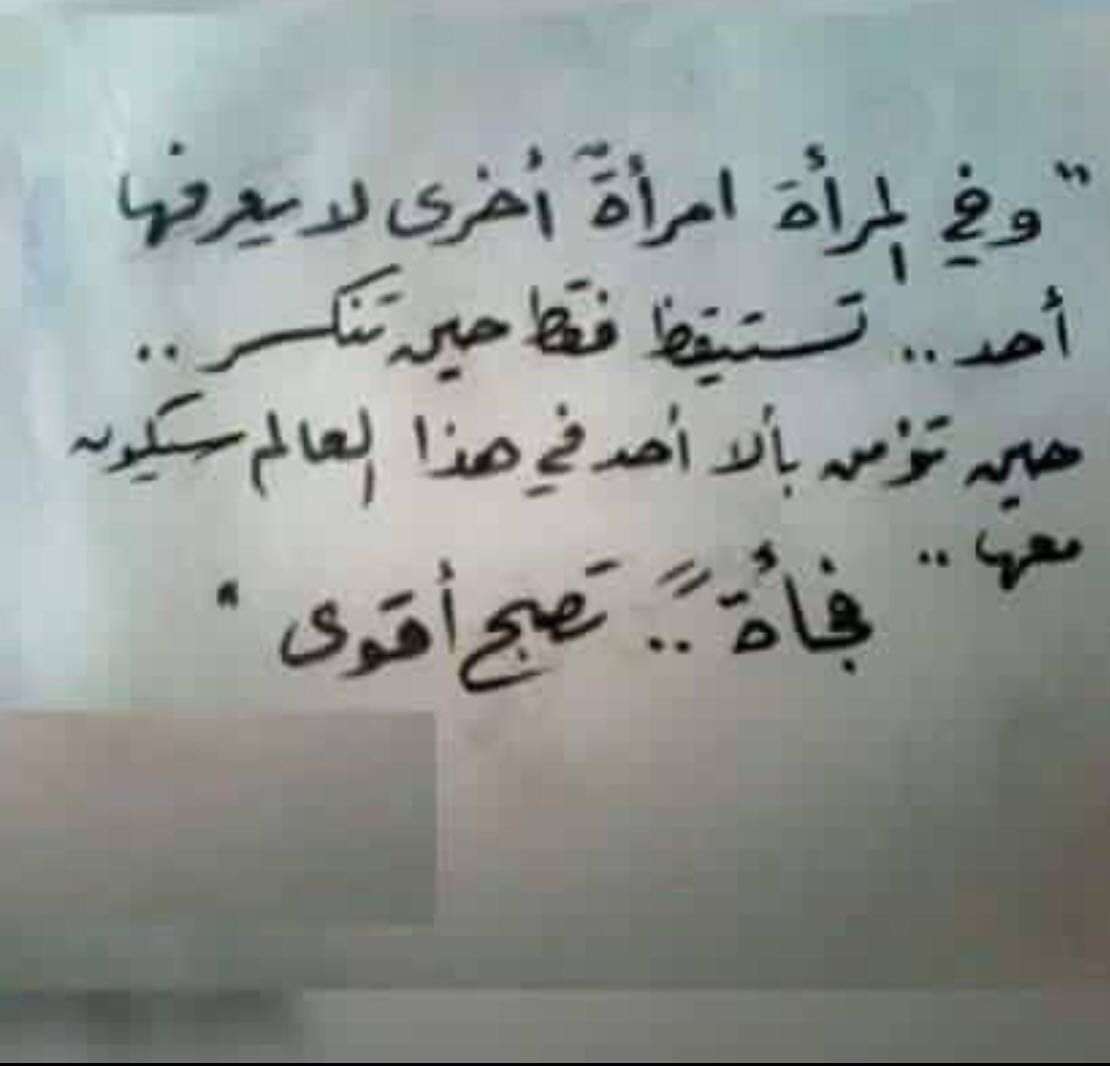 "وفي المرأة امرأةٌ أخرى لا يعرفها
أحد.. تستيقظ فقط حين تنكسر..
حين تؤمن بألا أحد في هذا العالم سيكون
معها..
فجأةً.. تصبح أقوى"